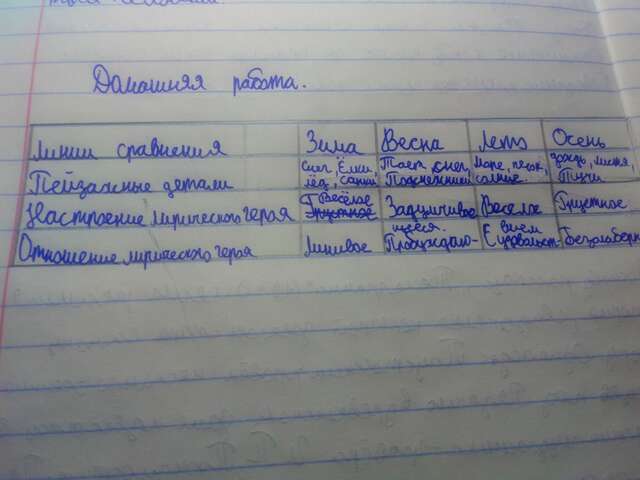 Домашняя работа.
Линии сравнения Зима Весна Лето Осень
Пейзажные детали Снег, Ёлки, лёд, санки Тает снег, Подснежники Море, песок, солнце. Дождь, листья, Тучи
Настроение лирического героя Весёлое Грустное Задумчивое Веселое Грустное
Отношение лирического героя Ленивое Пробуждаю- щееся. С удовольст- вием